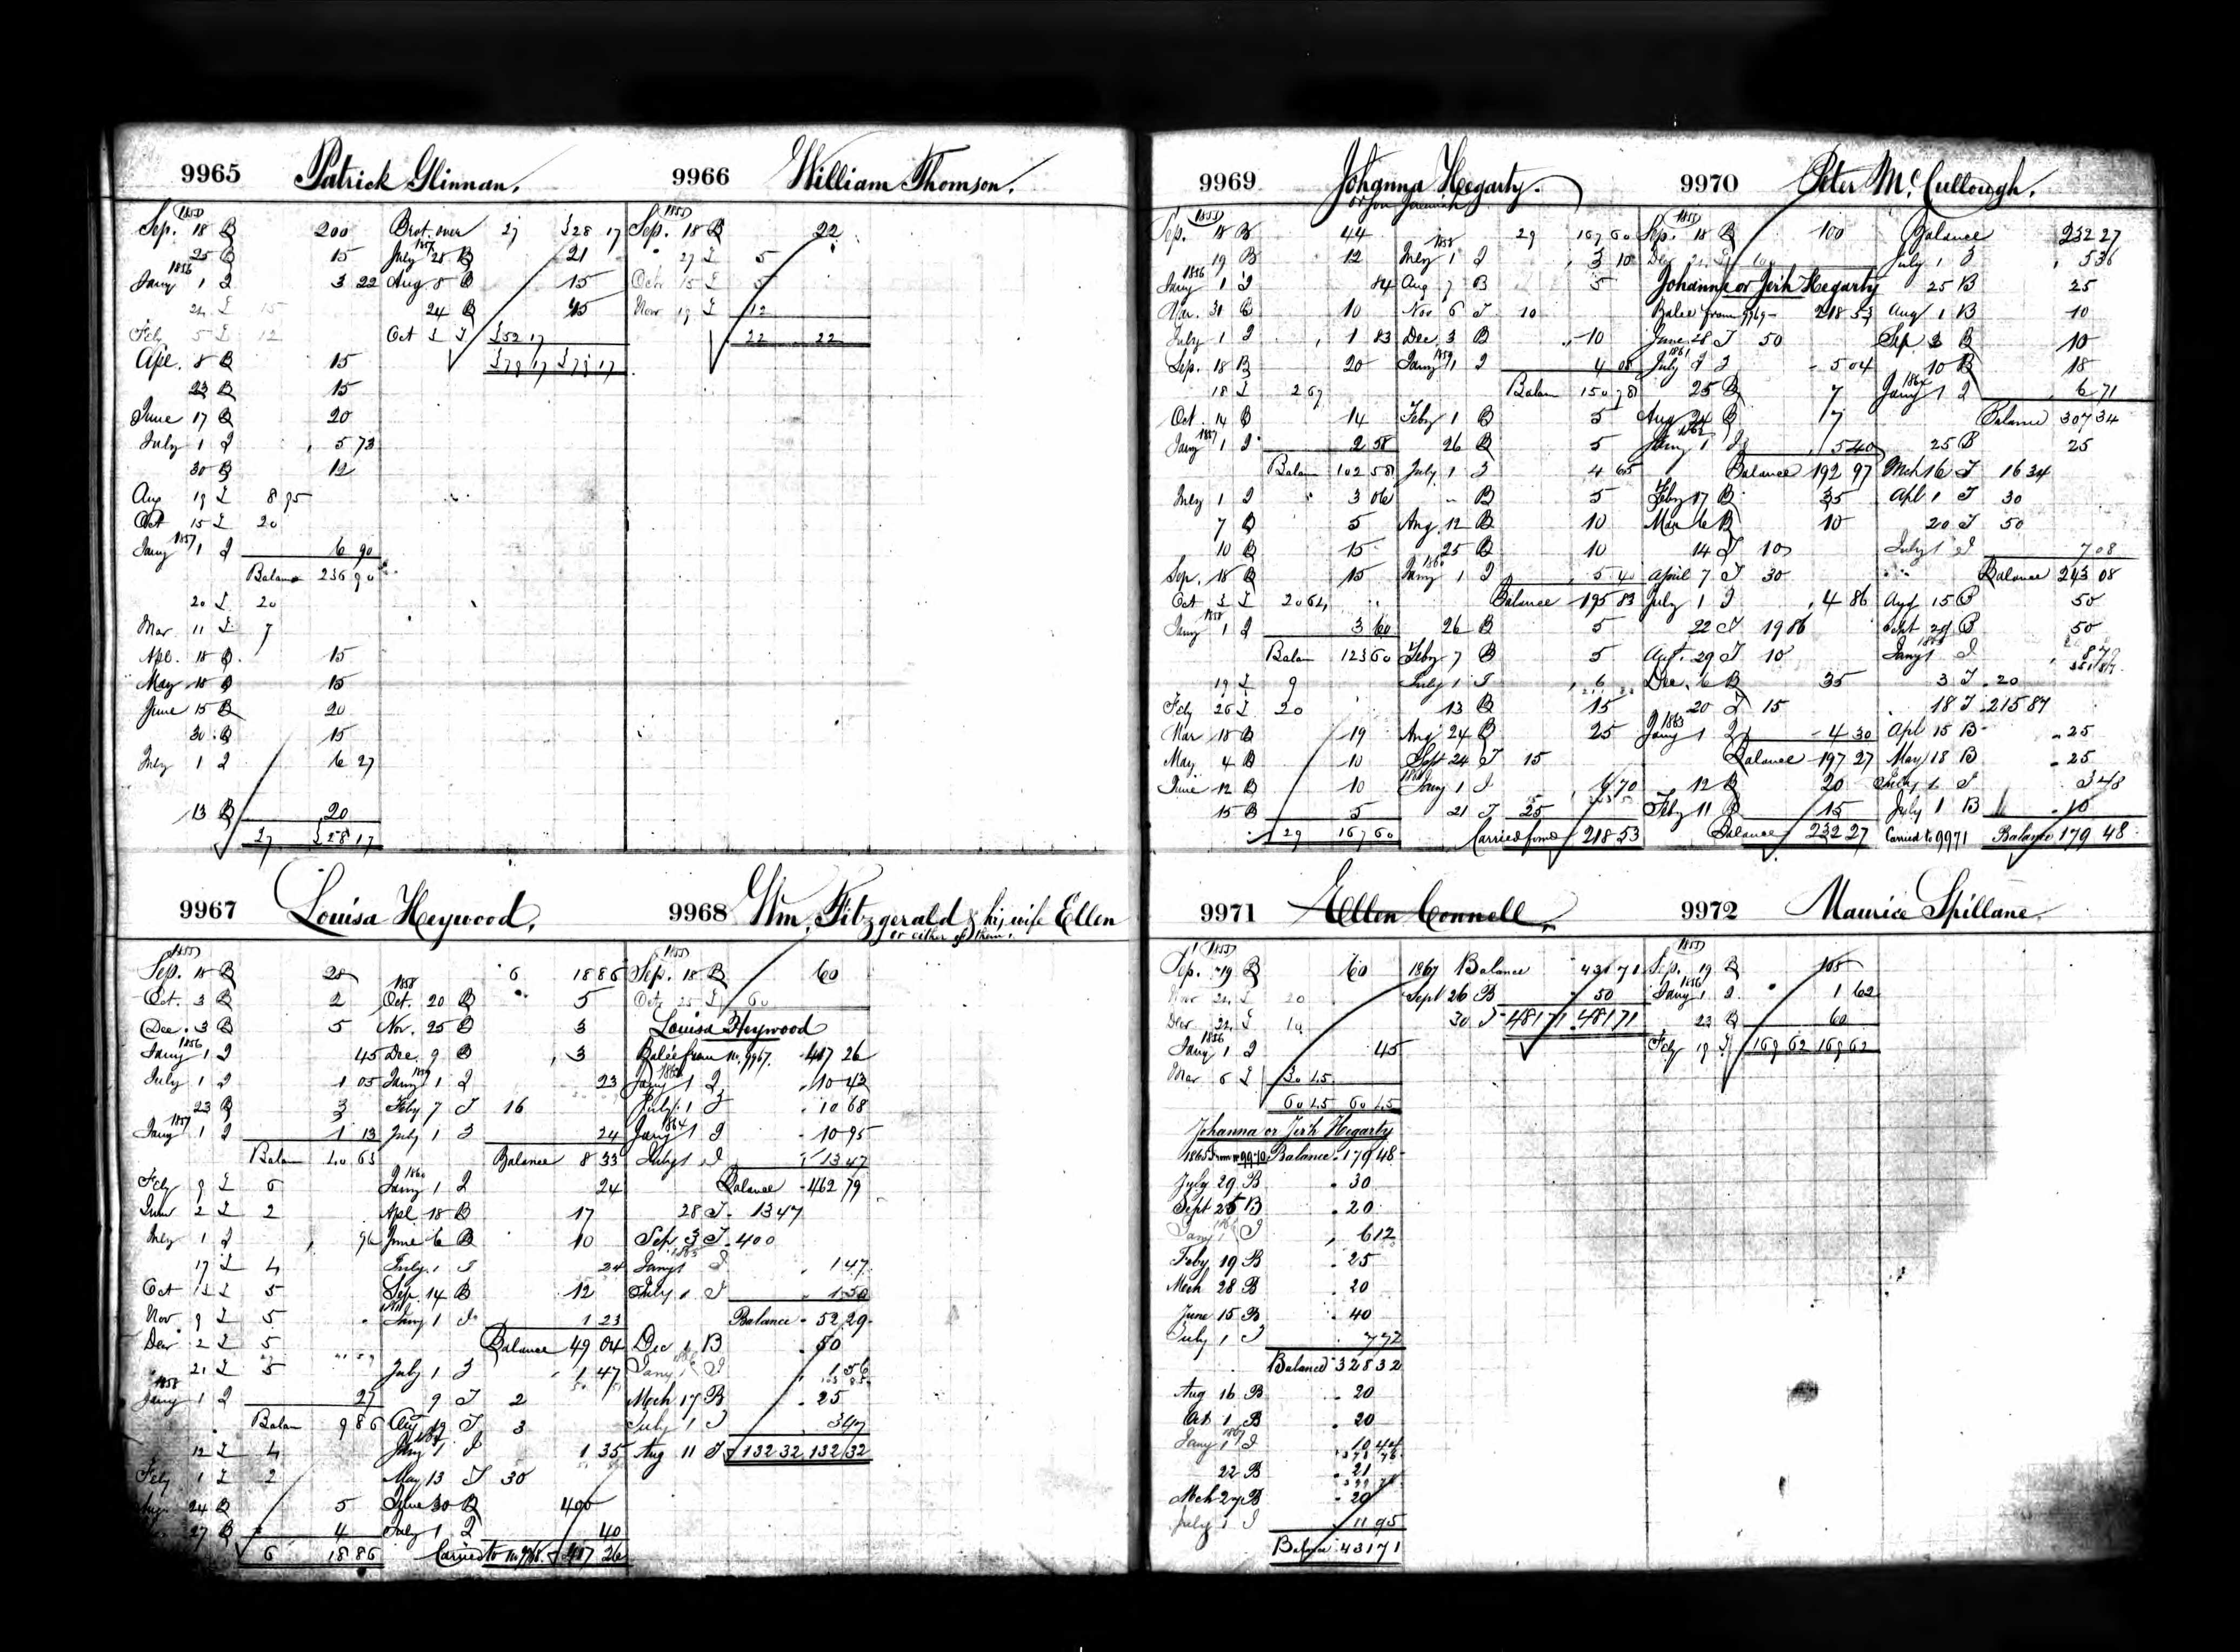 9965 Patrick Glinnan.
1855
Sep. 18 B 200
25 B 15
1856
Jany 1 I 3 22
24 I 15
Feby 5 I 12
Apl. 8 B 15
23 B 15
June 17 B 20
July 1 I 5 73
30 B 12
Aug 19 I 8 95
Oct 15 I 20
1857
Jany 1 I 6 90
Balance 236 90
20 I 20
Mar 11 I 7
Apl. 18 B 15
May 18 B 15
June 15 B 20
30 B 15
July 1 I 6 27
13 B 20
27 328 17
Brot. over 27 328 17
1857
July 28 B 21
Aug 8 B 15
24 B 15
Oct 3 I 352 17
379 17 379 17
9966 William Thomson.
1855
Sep. 18 B 22
" 27 I 5
Octr 15 I 5
Nov 19 I 12
22 22
9967 Louisa Heywood.
1855
Sep. 18 B 28
Oct. 3 B 2
Dec. 3 B 5
1856
Jany 1 I 45
July 1 I 1 05
23 B 3
1857
Jany 1 I 1 13
Balan 40 63
Feby 9 I 6
June 2 I 2
July 1 I 96
17 I 4
Oct 13 I 5
Nov 9 I 5
Decr 2 I 5
21 I 5
1858
Jany 1 I 27
Balan 9 86
12 I 4
Feby 1 I 2
24 B 5
27 B 4
6 18 86
6 18 86
1858
Oct. 20 B 5
Nov. 25 B 3
Dec. 9 B 3
1859
Jany 1 I 23
Feby 7 I 16
July 1 I 24
Balance 8 33
1860
Jany 1 I 24
Apl 18 B 17
June 6 B 10
July 1 I 24
Sep. 14 B 12
1861
Jany 1 I 1 23
Balance 49 04
July 1 I 1 47
9 I 2
Aug 19 I 3
1862
Jany 1 I 1 35
May 13 I 30
June 30 B 400
July 1 I 40
Carried to No. 9968 417 26
9968 Wm. Fitzgerald & his wife Ellen
or either of them.
1855
Sep. 18 B 60
Oct. 25 I 60
Louisa Heywood
Balce from No. 9967. 417 26
1863
Jany 1 I 10 43
July 1 I 10 68
1864
Jany 1 I 10 95
July 1 I 13 47
Balance 462 79
28 I 13 47
Sep 3 I 400
1865
Jany 1 I 1 47
July 1 I 1 50
Balance 52 29
Dec 1 B 50
1866
Jany 1 I 1 56
Mech 17 B 25
July 1 I 3 47
Aug 11 I 132 32 132 32
9969 Johanna Hegarty.
or son Jeremiah
1855
Sep. 18 B 44
19 B 12
1856
Jany 1 I 84
Mar. 31 B 10
July 1 I 1 83
Sep. 18 B 20
18 I 2 67
Oct. 14 B 14
1857
Jany 1 I 2 58
Balan 102 58
July 1 I 3 06
7 B 5
10 B 15
Sep. 18 B 15
Oct 3 I 20 64
1858
Jany 1 I 3 60
Balan 123 60
19 I 9
Feby 26 I 20
Mar 18 B 19
May 4 B 10
June 12 B 10
15 B 5
29 167 60
29 167 60
1858
July 1 I 3 10
Aug 7 B 5
Nov 6 I 10
Dec. 3 B 10
1859
Jany 1 I 4 08
Balan 150 78
Feby 1 B 5
26 B 5
July 1 I 4 65
" B 5
Aug. 12 B 10
25 B 10
1860
Jany 1 I 5 40
Balance 195 83
26 B 5
Feby 7 B 5
July 1 I 6
13 B 15
Aug 24 B 25
Sept 24 I 15
1861
Jany 1 I 6 70
21 I 25
Carried forwd 218 53
9970 Peter McCullough.
1855
Sep. 18 B 100
Dec 21 I 100
Johanna or Jerh Hegarty
Balce from 9969 218 53
June 28 I 50
1861
July 1 I 5 04
25 B 7
Aug 24 B 7
1862
Jany 1 I 5 40
Balance 192 97
Feby 17 B 35
Mar 6 B 10
14 I 10
April 7 I 30
July 1 I 4 86
22 I 19 86
Augt. 29 I 10
Dec. 6 B 35
20 I 15
1863
Jany 1 I 4 30
Balance 197 27
12 B 20
Feby 11 B 15
Balance 232 27
Balance 232 27
July 1 I 5 36
25 B 25
Aug 1 B 10
Sep. 3 B 10
10 B 18
1864
Jany 1 I 6 71
Balance 307 34
25 B 25
Mch 16 I 16 34
Apl 1 I 30
20 I 50
July 1 I 7 08
Balance 243 08
Augt 15 B 50
Sept 29 B 50
1865
Jany 1 I 8 79
3 I 20
18 I 215 87
Apl 15 B 25
May 18 B 25
July 1 I 3 48
July 1 B 10
Carried to 9971 Balance 179 48
9971 Ellen Connell.
1855
Sep. 19 B 60
Nov 21 I 20
Decr 22 I 10
1856
Jany 1 I 45
Mar 6 I 30 45
60 45 60 45
Johanna or Jerh Hegarty
1865 from No 9970 Balance 179 48
July 29 B 30
Sept 25 B 20
1866
Jany 1 I 6 12
Feby 19 B 25
Mech 28 B 20
June 15 B 40
July 1 I 7 72
Balance 328 32
Aug 16 B 20
Oct 1 B 20
1867
Jany 1 I 10 44
22 B 21
Mch 27 B 20
July 1 I 11 95
Balance 431 71
1867 Balance 431 71
Sept 26 B 50
30 I 481 71 481 71
9972 Maurice Spillane.
1855
Sep. 19 B 108
1856
Jany 1 I 1 62
23 B 60
Feby 19 I 169 62 169 62